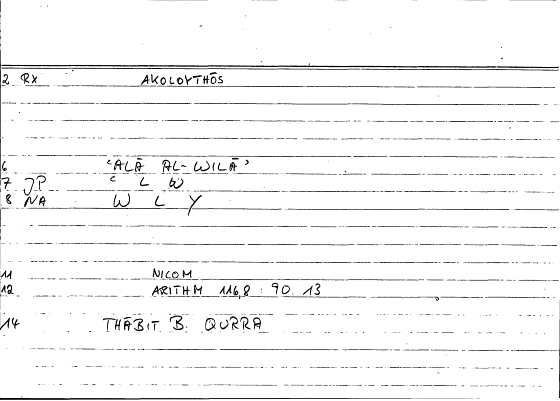 2 RX AKOLOYTHŌS
6 ‘ALĀ AL-WILĀ’
7 JP ‘ L W
8 NA W L Y
11 NICOM
12 ARITHM 116,8 : 90. 13
14 THĀBIT B. QURRA